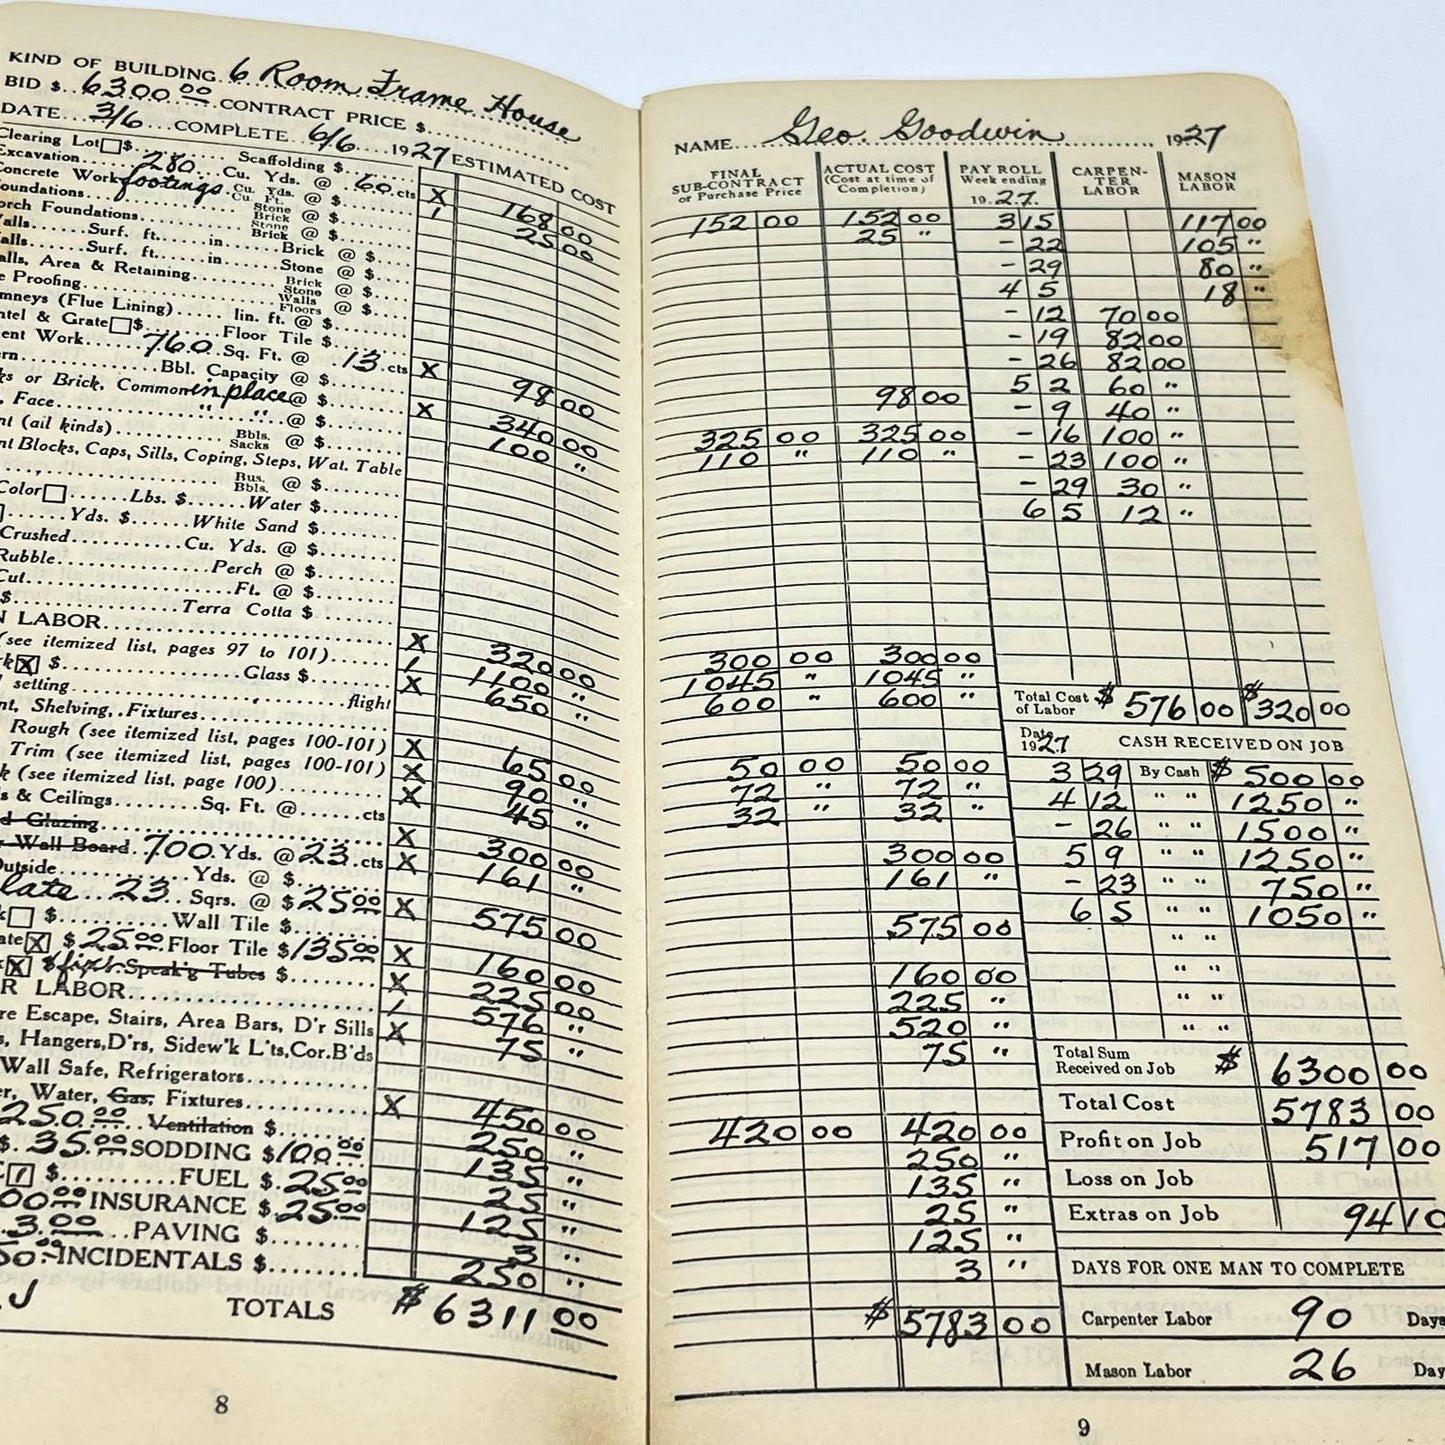 KIND OF BUILDING 6 Room Frame House
BID $ 6300 00 CONTRACT PRICE $
DATE 3/6 COMPLETE 6/6 1927 ESTIMATED COST
Clearing Lot $ Scaffolding $
Excavation 280 Cu. Yds. @ 60 cts X 168 00
oncrete Work footings Cu. Yds. Cu. Ft. @ $ / 25 00
oundations Stone Brick @ $
orch Foundations Stone Brick @ $
alls Surf. ft. in Brick @ $
alls Surf. ft. in Stone @ $
alls, Area & Retaining Brick Stone @ $
e Proofing Walls Floors @ $
mneys (Flue Lining) lin. ft. @ $
ntel & Grate $ Floor Tile $
ent Work 760 Sq. Ft. @ 13 cts X 98 00
ern Bbl. Capacity @ $
ks or Brick, Common in place @ $ X 340 00
, Face " " @ $ 100 "
nt (all kinds) Bbls. Sacks @ $
nt Blocks, Caps, Sills, Coping, Steps, Wat. Table
, Bus. Bbls. @ $
Color Lbs. $ Water $
Yds. $ White Sand $
Crushed Cu. Yds. @ $
Rubble Perch @ $
Cut Ft. @ $
$ Terra Cotta $
N LABOR X 320 00
(see itemized list, pages 97 to 101) / 1100 "
rk X $ Glass $ X 650 "
l setting flight
nt, Shelving, Fixtures
Rough (see itemized list, pages 100-101) X 65 00
Trim (see itemized list, pages 100-101) X 90 "
k (see itemized list, page 100) X 45 "
s & Ceilings Sq. Ft. @ cts
d Glazing X 300 00
r Wall Board 700 Yds. @ 23 cts X 161 "
Outside Yds. @ $
late 23 Sqrs. @ $25 00 X 575 00
k $ Wall Tile $
ate X $25 00 Floor Tile $135 00 X 160 00
k X $ fixt. Speak'g Tubes $ X 225 00
R LABOR / 576 "
re Escape, Stairs, Area Bars, D'r Sills X 75 "
s, Hangers, D'rs, Sidew'k L'ts, Cor. B'ds
Wall Safe, Refrigerators
er, Water, Gas, Fixtures X 450 00
250 00 Ventilation $ 250 "
$ 35 00 SODDING $100 00 135 "
/ $ FUEL $ 25 00 25 "
00 00 INSURANCE $ 25 00 125 "
3 00 PAVING $ 3 "
50 00 INCIDENTALS $ 250 "
TOTALS $ 6311 00
8
NAME Geo. Goodwin 1927
FINAL SUB-CONTRACT or Purchase Price
ACTUAL COST (Cost at time of Completion)
PAY ROLL Week ending 1927
CARPENTER LABOR
MASON LABOR
152 00 152 00 3 15 117 00
25 " - 22 105 "
- 29 80 "
4 5 18 "
- 12 70 00
- 19 82 00
- 26 82 00
98 00 5 2 60 "
- 9 40 "
325 00 325 00 - 16 100 "
110 " 110 " - 23 100 "
- 29 30 "
6 5 12 "
300 00 300 00
1045 " 1045 "
600 " 600 "
Total Cost of Labor $ 576 00 $ 320 00
Date 1927 CASH RECEIVED ON JOB
50 00 50 00 3 29 By Cash $ 500 00
72 " 72 " 4 12 " " 1250 "
32 " 32 " - 26 " " 1500 "
300 00 5 9 " " 1250 "
161 " - 23 " " 750 "
6 5 " " 1050 "
575 00 " "
160 00 " "
225 " " "
520 " " "
75 "
Total Sum Received on Job $ 6300 00
Total Cost 5783 00
420 00 420 00 Profit on Job 517 00
250 "
135 " Loss on Job
25 " Extras on Job 94 10
125 "
3 " DAYS FOR ONE MAN TO COMPLETE
$ 5783 00 Carpenter Labor 90 Days
Mason Labor 26 Day
9